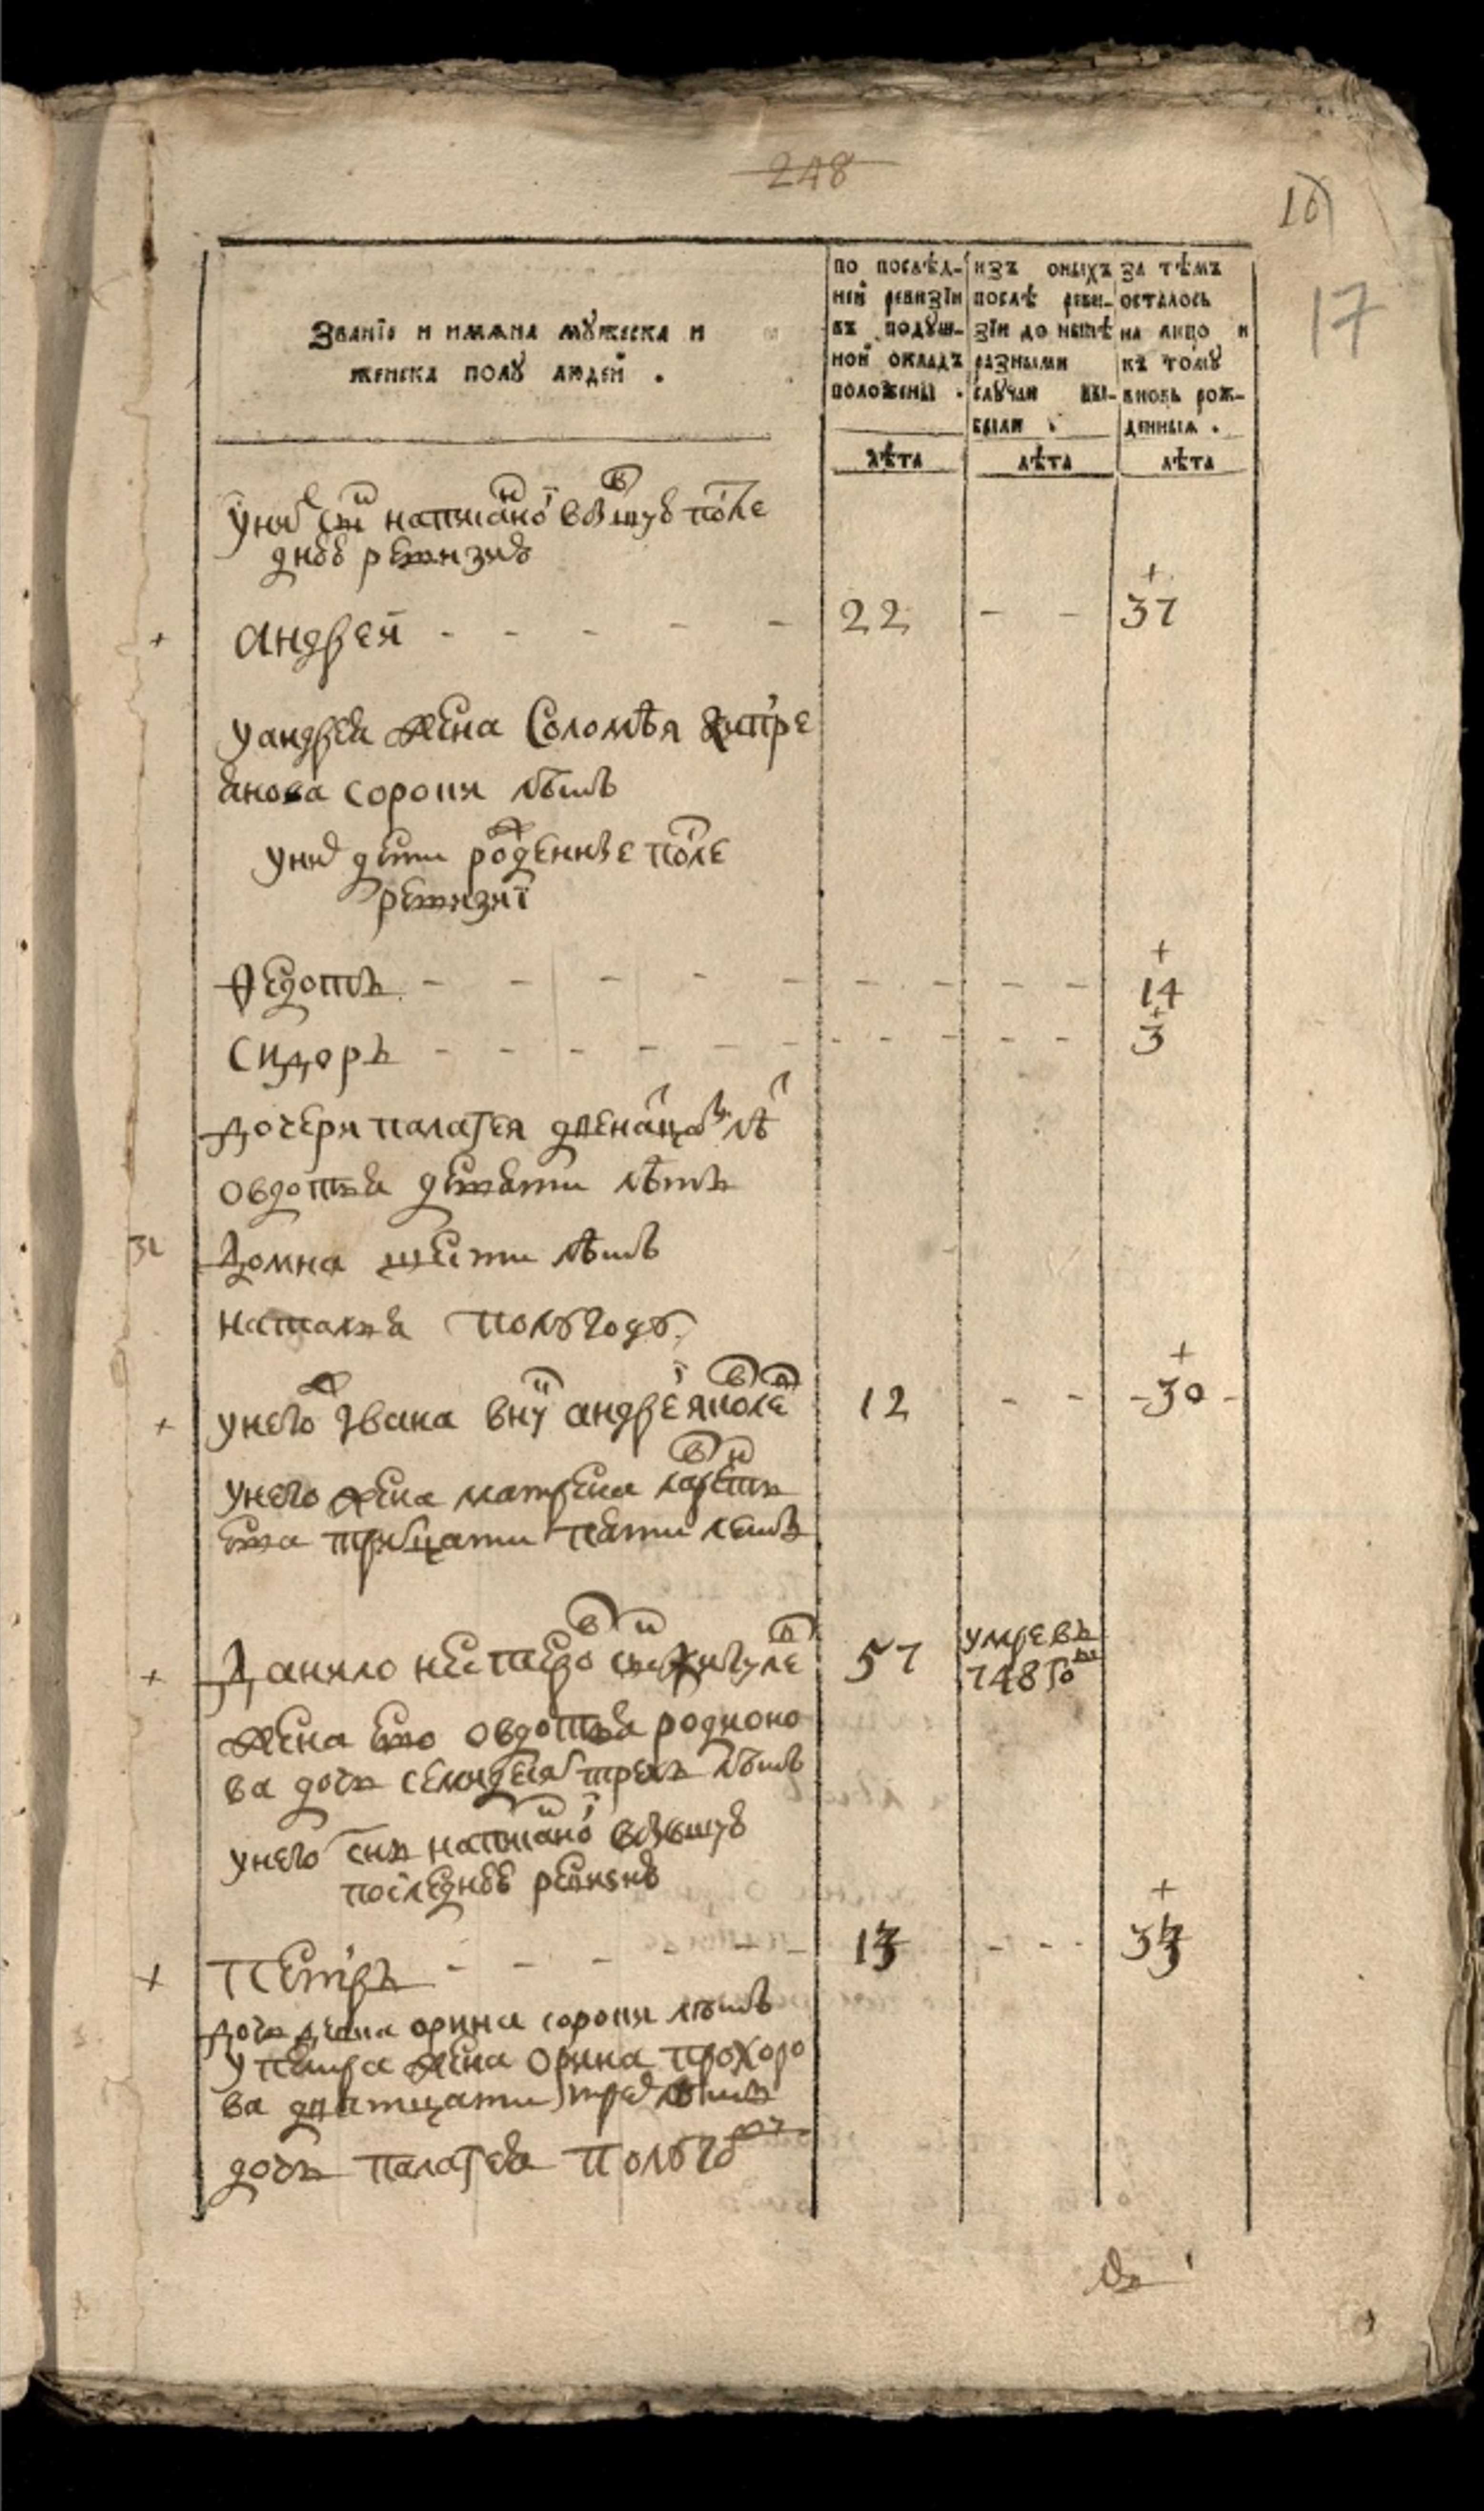 248
16
17
Званїѧ и имѧна мꙋжеска и
женска полꙋ людей .
по послѣд-
ней ревизїи
въ подꙋш-
ной окладъ
положены .
изъ оныхъ
послѣ реви-
зїи до нынѣ
разными
слꙋчаи вы-
были .
за тѣмъ
осталось
на лицо и
къ томꙋ
вновь рож-
денныѧ .
лѣта
лѣта
лѣта
у них сн написаной в бывшую после
днюю ревизию
+ Андрей - - - - - 22 - - + 37
у андрея жена Соломѣя
анова сорока лѣтъ
у них дети рожденные после
ревизиї
Ѳедотъ - - - - - - - - - + 14
Сидоръ - - - - - - - - - - + 3
дочери палагея двенацати лѣт
овдотья девяти лѣтъ
Домна шести лѣтъ
наталья полугоду
+ у него Ивана внук андрей 12 - - + - 30 -
у него жена матрена
ева трицати пяти летъ
+ Данило нестеров сын 57 умревъ
748 го
жена ево овдотья родионо
ва дочь семидесят трехъ лѣтъ
у него снъ написаной в бывшую
последнюю ревизию
+ Петръ - - - - - - 13 - - - + 33
дочь орина сорока лѣтъ
у петра жена Орина прохоро
ва дватцати трех лѣтъ
дочь палагея полугоду